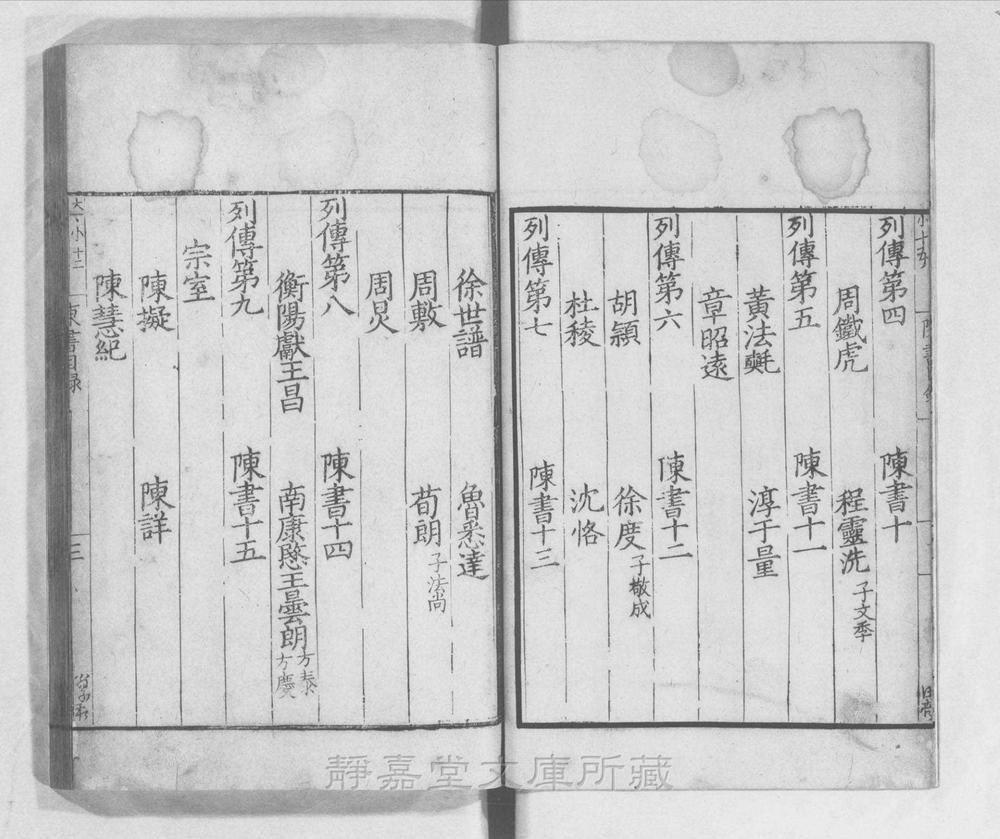 列傳第四 陳書十
周鐵虎 程靈洗 子文季
列傳第五 陳書十一
黃法𣰰 淳于量
章昭遠
列傳第六 陳書十二
胡穎 徐度 子敬成
杜稜 沈恪
列傳第七 陳書十三
徐世譜 魯悉達
周敷 荀朗 子法尚
周炅
列傳第八 陳書十四
衡陽獻王昌 南康愍王曇朗 方泰 方慶
列傳第九 陳書十五
宗室
陳擬 陳詳
陳慧紀
大 小 十二 陳書目録 三
靜嘉堂文庫所藏